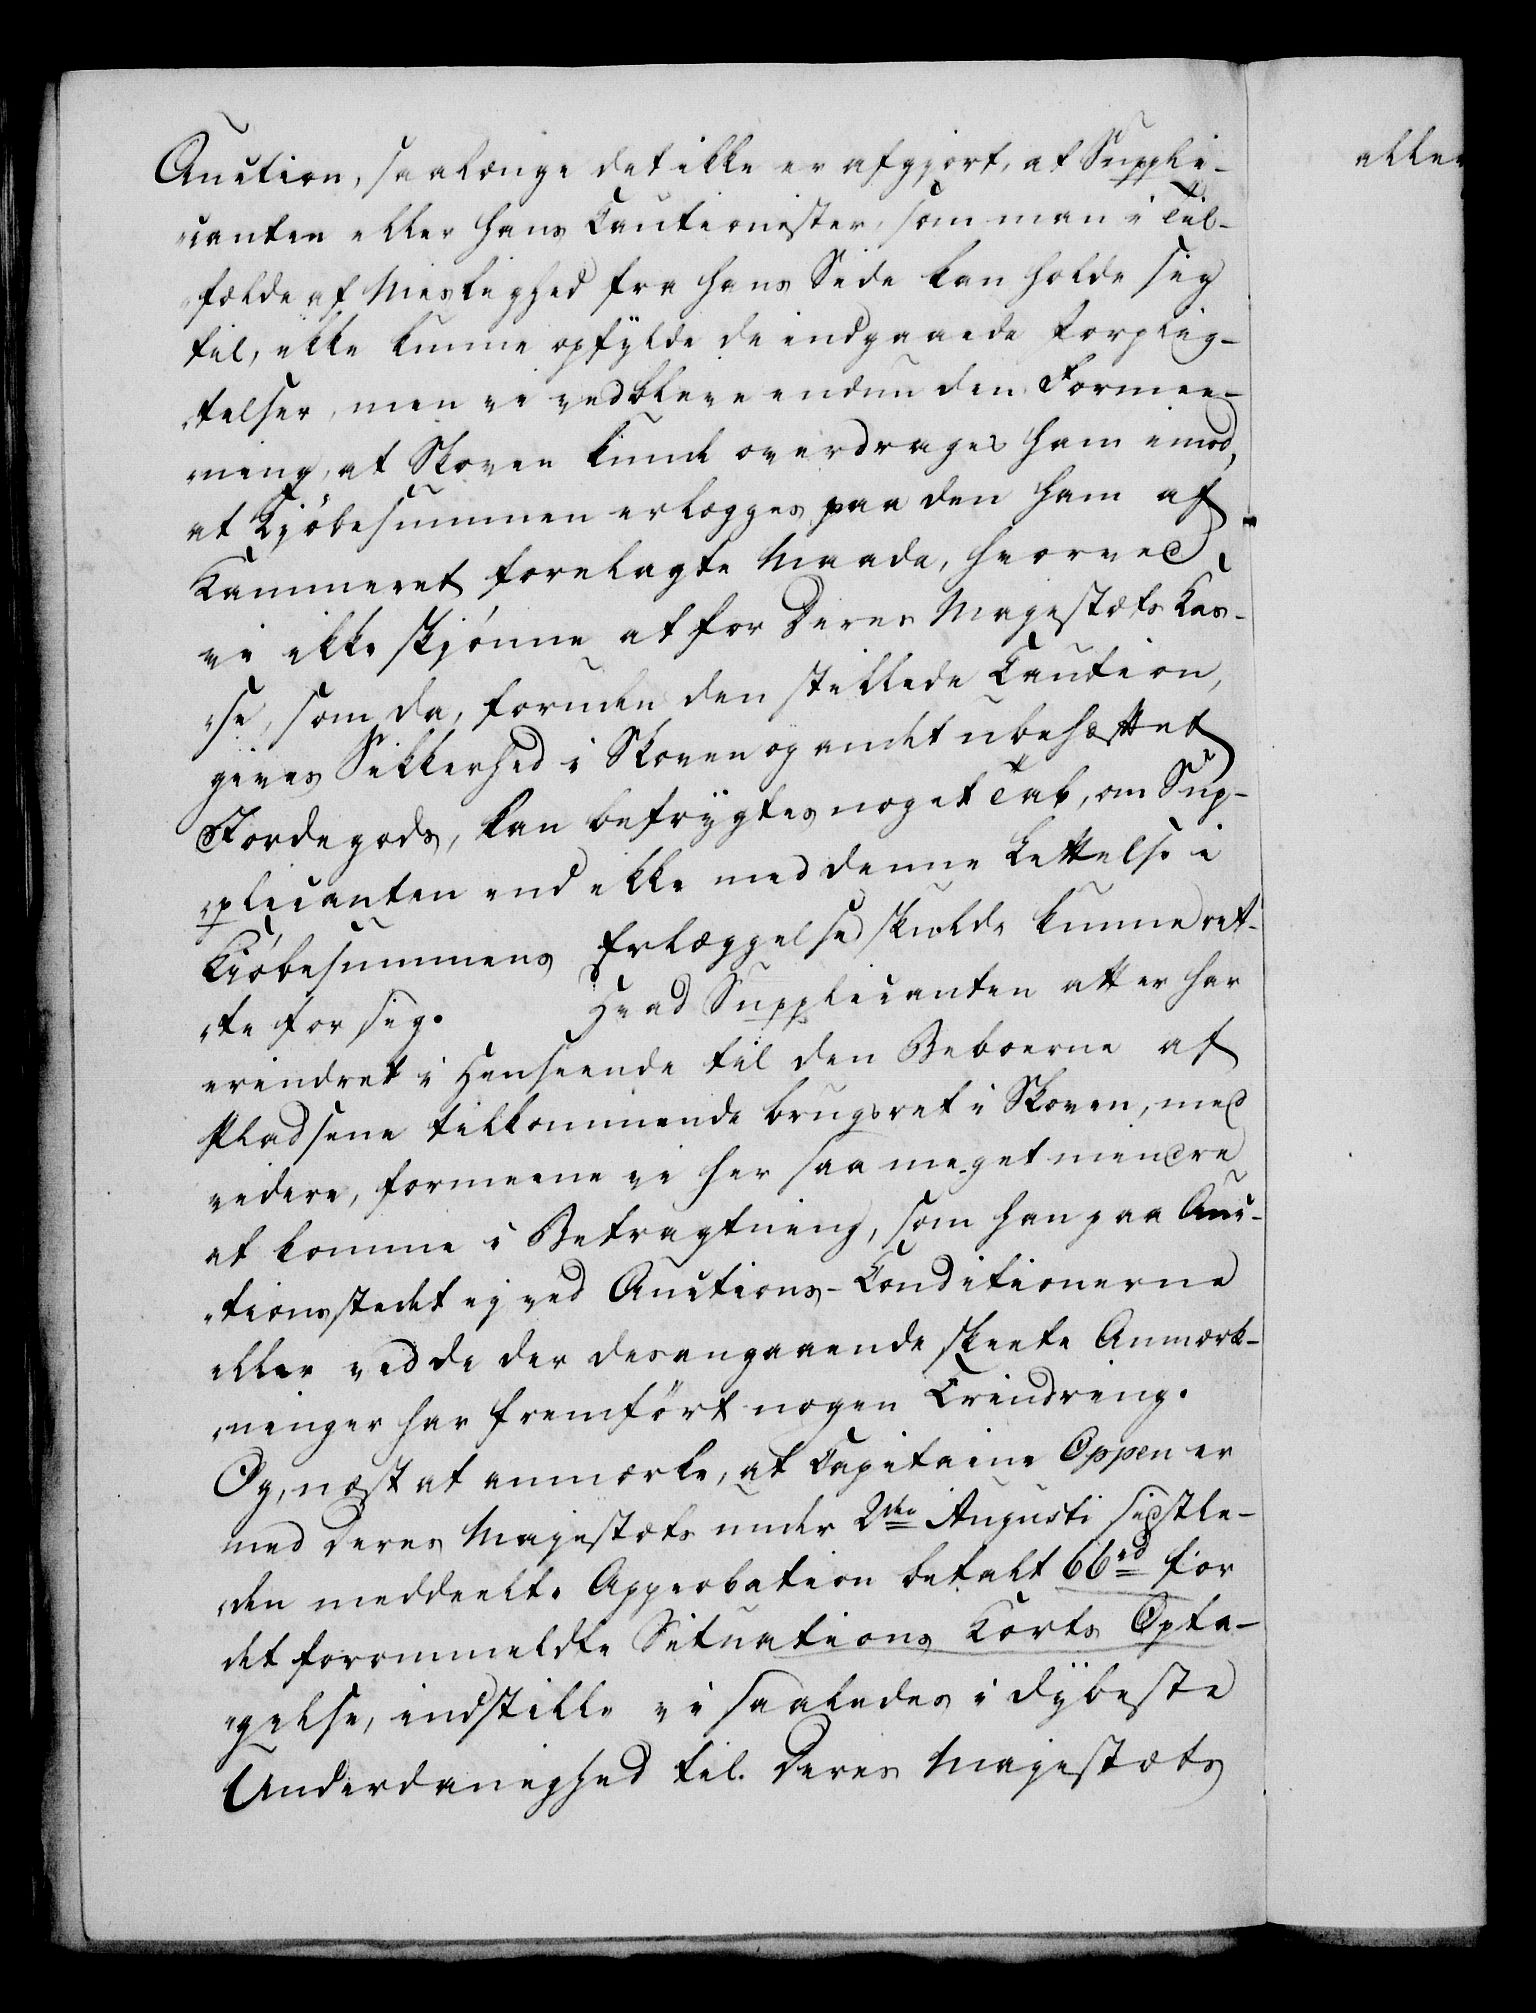 Auction, saalænge det ikke er afgjort, at Suppli-
„canten eller hans Cautionister, som man i Til-
„fælde af Mislighed fra hans Side kan holde sig
til, ikke kunne opfylde de indgaaede Forplig-
„telser, men vi vedbleve endnu den Formee-
„ning, at Skoven kunde overdrages ham imod,
at Kjöbesummen erlægges paa den ham af
Kammeret forelagte Maade, hvorved
vi ikke skjönne at for Deres Majestæts Kas-
„se, som da, foruden den stillede Caution,
gives Sikkerhed i Skoven og andet ubehæftet
Jordegods, kan befrygtes noget Tab, om Sup-
„plicanten end ikke med denne Lettelse i
Kjöbesummens Erlæggelse skulde kunne ret-
„te for sig. Hvad Supplicanten atter har
erindret i Henseende til den Beboerne af
Pladsene tilkommende brugsret i Skoven, med
videre, formeene vi her saa meget mindre
at komme i Betragtning, som han paa Auc-
„tionsstedet ej ved Auctions-Conditionerne
eller ved de der desangaaende skeete Anmærk-
„ninger har fremført nogen Erindring.
Og, næst at anmærke, at Capitaine Oppen er
med Deres Majestæts under 2den Augusti sidstle-
„den meddeelte Approbation betalt 66rd for
det forommeldte Situations Korts Opta-
„gelse, indstille vi saaledes i dÿbeste
Underdanighed til Deres Majestæts
aller